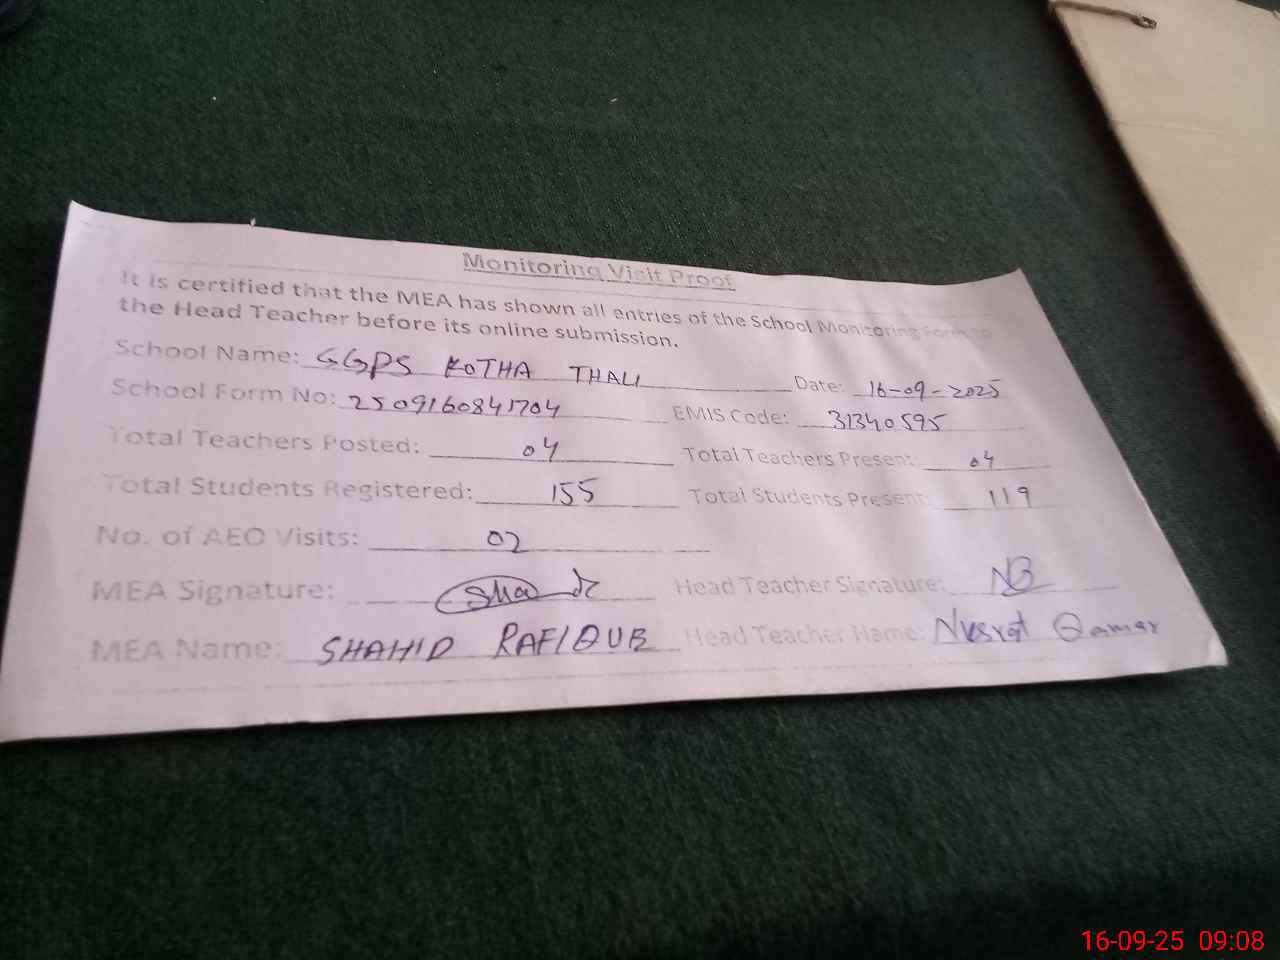 Monitoring Visit Proof
It is certified that the MEA has shown all entries of the School Monitoring Form to
the Head Teacher before its online submission.
School Name: GGPS KOTHA THALI Date: 16-09-2025
School Form No: 2509160841704 EMIS Code: 31340595
Total Teachers Posted: 04 Total Teachers Present: 04
Total Students Registered: 155 Total Students Present: 119
No. of AEO Visits: 02
MEA Signature: Head Teacher Signature:
MEA Name: SHAHID RAFIQUE Head Teacher Name: Nusrat Qamar
16-09-25 09:08